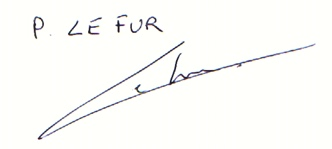 P. LE FUR